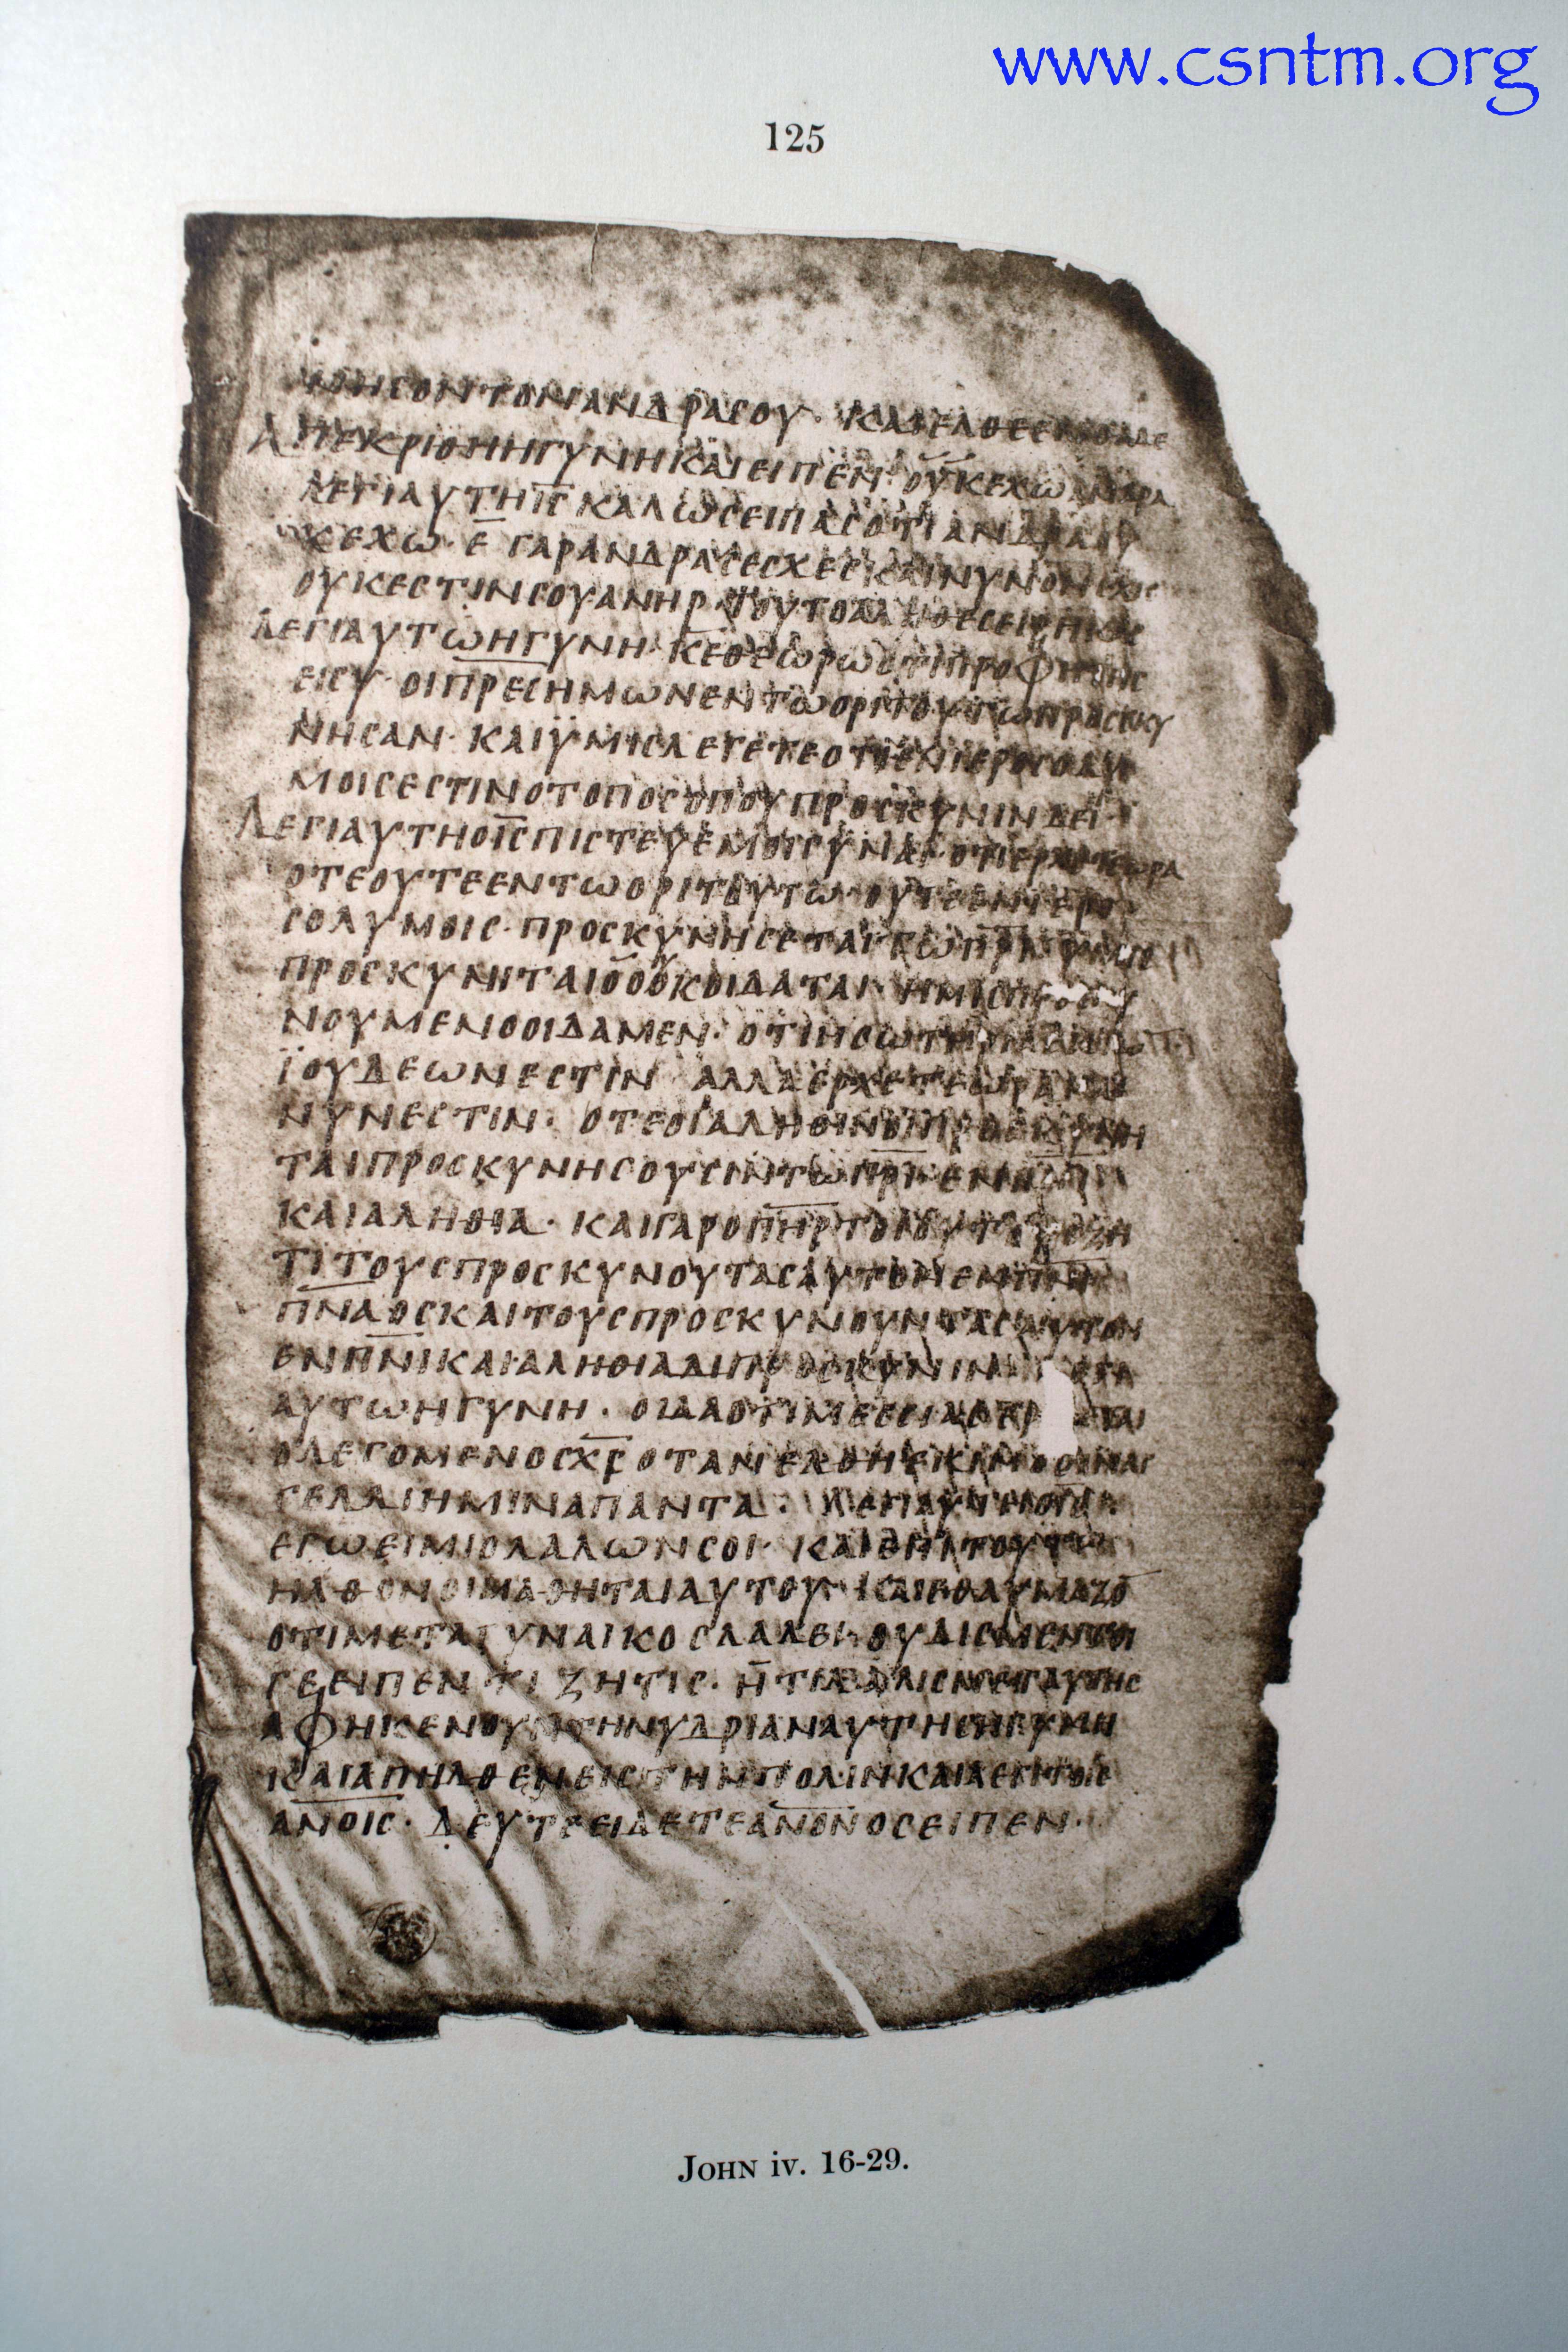 www.csntm.org
125
ΝΗϹΟΝΤΟΝΑΝΔΡΑϹΟΥ· ΚΑΙΕΛΘΕ
ΑΠΕΚΡΙΘΗΗΓΥΝΗΚΑΙΕΙΠΕΝ· ΟΥΚΕΧΩΑΝΔΡΑ
ΛΕΓΙΑΥΤΗΙ̅Ϲ̅ΚΑΛΩϹΕΙΠΑϹΟΤΙΑΝΔΡΑΟΥ
ΚΕΧΩ· Ε̅ ΓΑΡΑΝΔΡΑϹΕϹΧΕϹΚΑΙΝΥΝΟΝΕΧΙϹ
ΟΥΚΕϹΤΙΝϹΟΥΑΝΗΡ ΤΟΥΤΟΑΛΗΘΕϹΕΙΡΗΚΕϹ
ΛΕΓΙΑΥΤΩΗΓΥΝΗ· Κ̅Ε̅ΘΕΩΡΩΟΤΙΠΡΟΦΗΤΗϹ
ΕΙϹΥ· ΟΙΠ̅Ρ̅Ε̅Ϲ̅ΗΜΩΝΕΝΤΩΟΡΙΤΟΥΤΩΠΡΟϹΕΚΥ
ΝΗϹΑΝ· ΚΑΙΫΜΙϹΛΕΓΕΤΕΟΤΙΕΝΙΕΡΟϹΟΛΥ
ΜΟΙϹΕϹΤΙΝΟΤΟΠΟϹΟΠΟΥΠΡΟϹΚΥΝΙΝΔΕΙ·
ΛΕΓΙΑΥΤΗΟΙ̅Ϲ̅ΠΙϹΤΕΥΕΜΟΙΓΥΝΑΙ· ΟΤΙΕΡΧΕΤΕΩΡΑ
ΟΤΕΟΥΤΕΕΝΤΩΟΡΙΤΟΥΤΩ· ΟΥΤΕΕΝΙΕΡΟ
ϹΟΛΥΜΟΙϹ· ΠΡΟϹΚΥΝΗϹΕΤΑΙΤΩΠ̅Ρ̅Ι̅· ΥΜΙϹ
ΠΡΟϹΚΥΝΙΤΑΙΟΟΥΚΟΙΔΑΤΑΙ· ΗΜΙϹΠΡΟϹΚΥ
ΝΟΥΜΕΝΟΟΙΔΑΜΕΝ· ΟΤΙΗϹΩΤΗΡΙΑ
ΪΟΥΔΕΩΝΕϹΤΙΝ ΑΛΛΑΕΡΧΕΤΕΩΡΑΚΑΙ
ΝΥΝΕϹΤΙΝ· ΟΤΕΟΙΑΛΗΘΙΝΟΙΠΡΟϹΚΥΝΗ
ΤΑΙΠΡΟϹΚΥΝΗϹΟΥϹΙΝΤΩΠ̅Ρ̅Ι̅ΕΝΠ̅Ν̅Ι̅
ΚΑΙΑΛΗΘΙΑ· ΚΑΙΓΑΡΟΠ̅Η̅Ρ̅ΤΟΙΟΥΤΟΥϹΖΗ
ΤΙΤΟΥϹΠΡΟϹΚΥΝΟΥΤΑϹΑΥΤΟΝΕΝΠ̅Ν̅Ι̅
Π̅Ν̅Α̅ΟΘ̅Ϲ̅ΚΑΙΤΟΥϹΠΡΟϹΚΥΝΟΥΝΤΑϹΑΥΤΟΝ
ΕΝΠ̅Ν̅Ι̅ΚΑΙΑΛΗΘΙΑΔΙΠΡΟϹΚΥΝΙΝ
ΑΥΤΩΗΓΥΝΗ· ΟΙΔΑΟΤΙΜΕϹϹΙΑϹ
ΟΛΕΓΟΜΕΝΟϹΧ̅Ϲ̅ΟΤΑΝΕΛΘΗΕΚΙΝΟϹΑΝΑΓ
ΓΕΛΛΙΗΜΙΝΑΠΑΝΤΑ·
ΕΓΩΕΙΜΙΟΛΑΛΩΝϹΟΙ· ΚΑΙΕΠΙΤΟΥΤΩ
ΗΛΘΟΝΟΙΜΑΘΗΤΑΙΑΥΤΟΥ· ΚΑΙΕΘΑΥΜΑΖΟ̅
ΟΤΙΜΕΤΑΓΥΝΑΙΚΟϹΛΑΛΕΙ· ΟΥΔΙϹΜΕΝΤΟΙ
ΓΕΕΙΠΕΝΤΙΖΗΤΙϹ· ΗΤΙΛΑΛΙϹΜΕΤΑΥΤΗϹ
ΑΦΗΚΕΝΟΥΝΤΗΝΥΔΡΙΑΝΑΥΤΗϹΗΓΥΝΗ
ΚΑΙΑΠΗΛΘΕΝΕΙϹΤΗΝΠΟΛΙΝΚΑΙΛΕΓΙΤΟΙϹ
Α̅Ν̅Ο̅Ι̅Ϲ̅· ΔΕΥΤΕΕΙΔΕΤΕΑ̅Ν̅Ο̅Ν̅ΟϹΕΙΠΕΝ·
JOHN iv. 16-29.